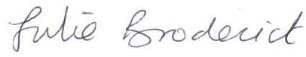 Julie Broderick